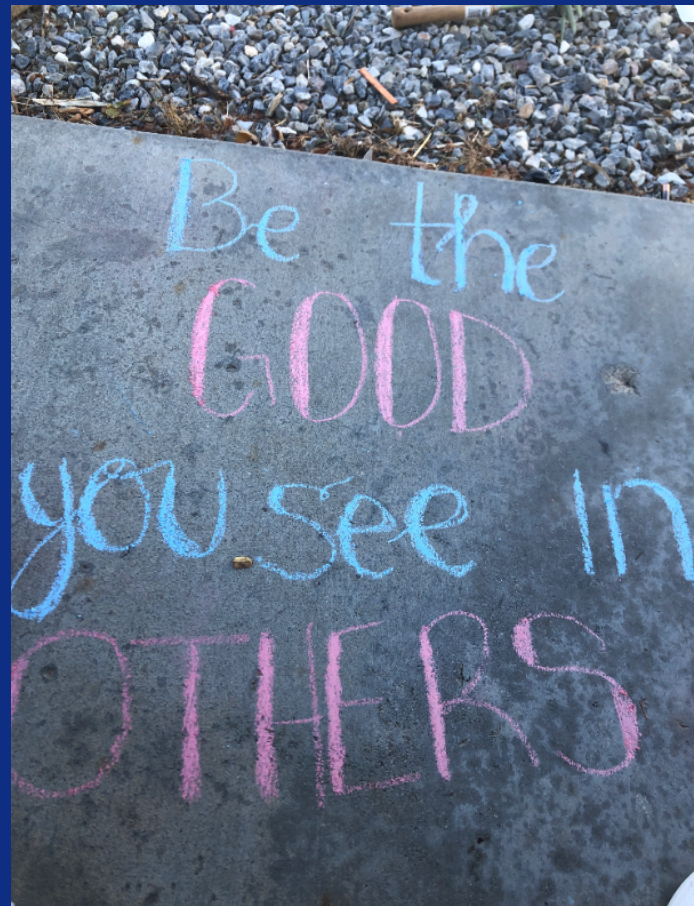 Be the
GOOD
you see in
OTHERS